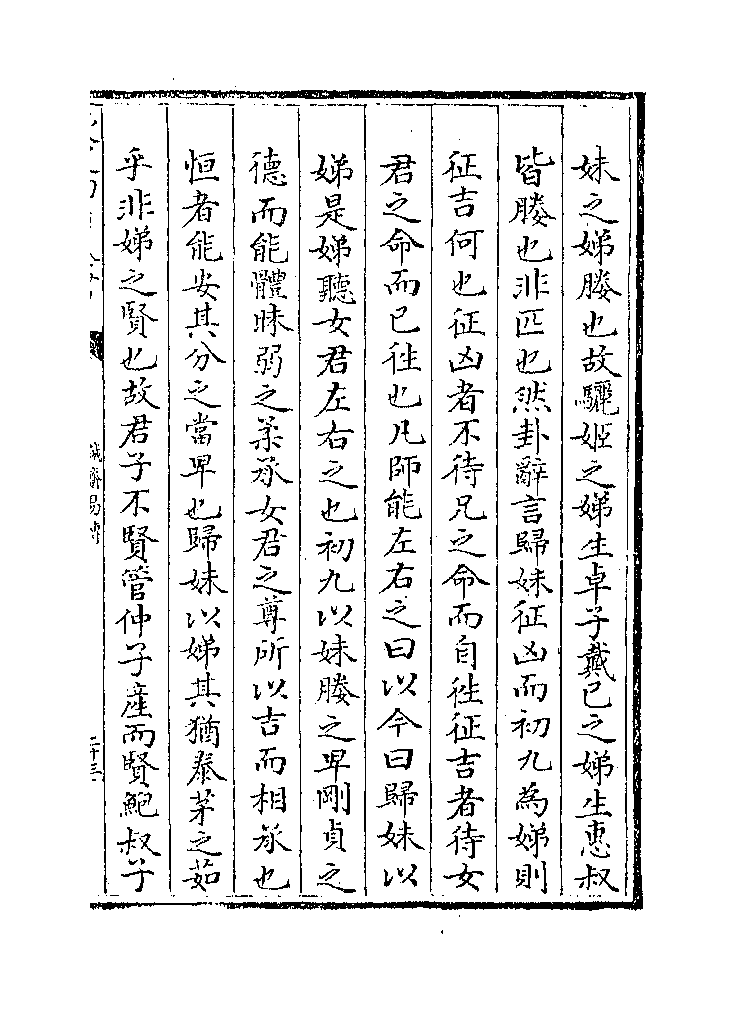 妹之娣媵也故驪姬之娣生卓子戴已之娣生惠叔
皆媵也非匹也然卦辭言歸妹征凶而初九為娣則
征吉何也征凶者不待兄之命而自徃征吉者待女
君之命而已徃也凡師能左右之曰以今曰歸妹以
娣是娣聽女君左右之也初九以妹媵之卑剛貞之
德而能體昧弱之柔承女君之尊所以吉而相承也
恒者能安其分之當卑也歸妹以娣其猶泰茅之茹
乎非娣之賢也故君子不賢管仲子產而賢鮑叔子
誠齋易傳
二十三